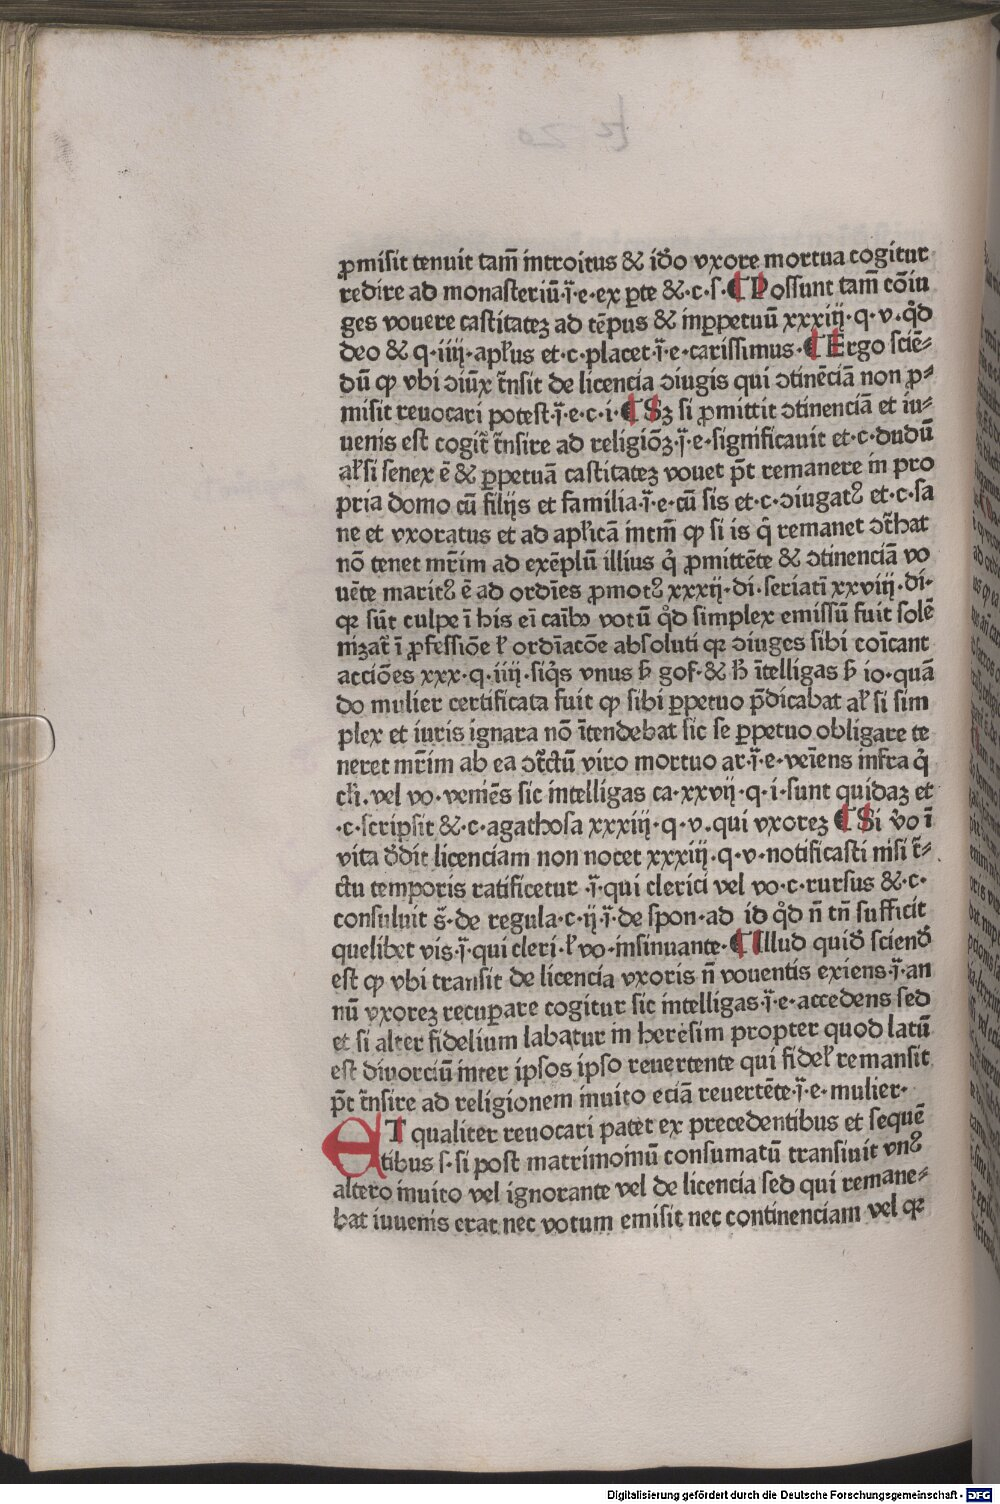 ꝓmisit tenuit tam̄ introitus & id̄o vxore mortua cogitur
redire ad monasteriū·i̅·e·ex ꝑte &·c·s·¶ Possunt tam̄ cōiu
ges vouere castitateꝫ ad tēpus & inꝑpetuū xxxiij·q·v·qd̄
deo & q·iiij·apl̄us et·c·placet·i̅·e·carissimus·¶ Ergo sciē⸗
dū ꝙ vbi ↄiūx t̄nsit de licencia ↄiugis qui ↄtinēciā non ꝓ⸗
misit reuocari potest·i̅·e·c·i·¶ Sꝫ si ꝓmittit ↄtinenciā et iu⸗
uenis est cogit̄ t̄nsire ad religiōꝫ·i̅·e·significauit et·c·dudū
al̄si senex ē & ꝑpetuā castitateꝫ vouet p̄t remanere in pro
pria domo cū filijs et familia·i̅·e·cū sis et·c·ↄiugatꝰ et·c·sa
ne et vxoratus et ad apl̄icā intm̄ ꝙ si is q̄ remanet ↄt̄hat
nō tenet mr̄im ad exēplū illius q̄ ꝓmittēte & ↄtinenciā vo
uēte maritꝰ ē ad ordīes ꝓmotꝰ xxxij·di·seriatī xxviij·di·
qꝛ sūt culpe ī his eī caībꝫ votū qd̄ simplex emissū fuit solē
nizat̄ ī ꝓfessiōe ł ordīacōe absoluti qꝛ ↄiuges sibi coīcant
acciōes xxx·q·iiij·siq̄s vnus h̄ gof·& h̄ ītelligas h̄ io·quā
do mulier certificata fuit ꝙ sibi ꝑpetuo p̄dicabat al̄ si sim
plex et iuris ignara nō ītendebat sic se ꝑpetuo obligare te
neret mr̄im ab ea ↄt̄ctū viro mortuo ar·i̅·e·veīens infra q̄
cl̄i·vel vo·veniēs sic intelligas ca·xxvij·q·i·sunt quidaꝫ et
·c·scripsit &·c·agathosa xxxiij·q·v·qui vxoreꝫ ¶ Si v̄o ī
vita d̄dit licenciam non nocet xxxiij·q·v·notificasti nisi t̄⸗
ctu temporis ratificetur ·i̅·qui clerici vel vo·c·rursus &·c·
consuluit s̄·de regula·c·ij·i̅·de spon·ad id qd̄ n̄ tn̄ sufficit
quelibet vis·i̅·qui cleri·ł vo·insinuante·¶ Illud quid̄ sciend̄
est ꝙ vbi transit de licencia vxoris n̄ vouentis exiens·i̅·an
nū vxoreꝫ recuꝑare cogitur sic intelligas·i̅·e·accedens sed
et si alter fidelium labatur in heresim propter quod latū
est diuorciū inter ipsos ipso reuertente qui fidel̄ remansit
p̄t t̄nsire ad religionem inuito eciā reuertēte·i̅·e·mulier·
ET qualiter reuocari patet ex precedentibus et sequē
tibus s·si post matrimoniū consumatū transiuit vnꝰ
altero inuito vel ignorante vel de licencia sed qui remane⸗
bat iuuenis erat nec votum emisit nec continenciam vel qꝛ
Digitalisierung gefördert durch die Deutsche Forschungsgemeinschaft - DFG